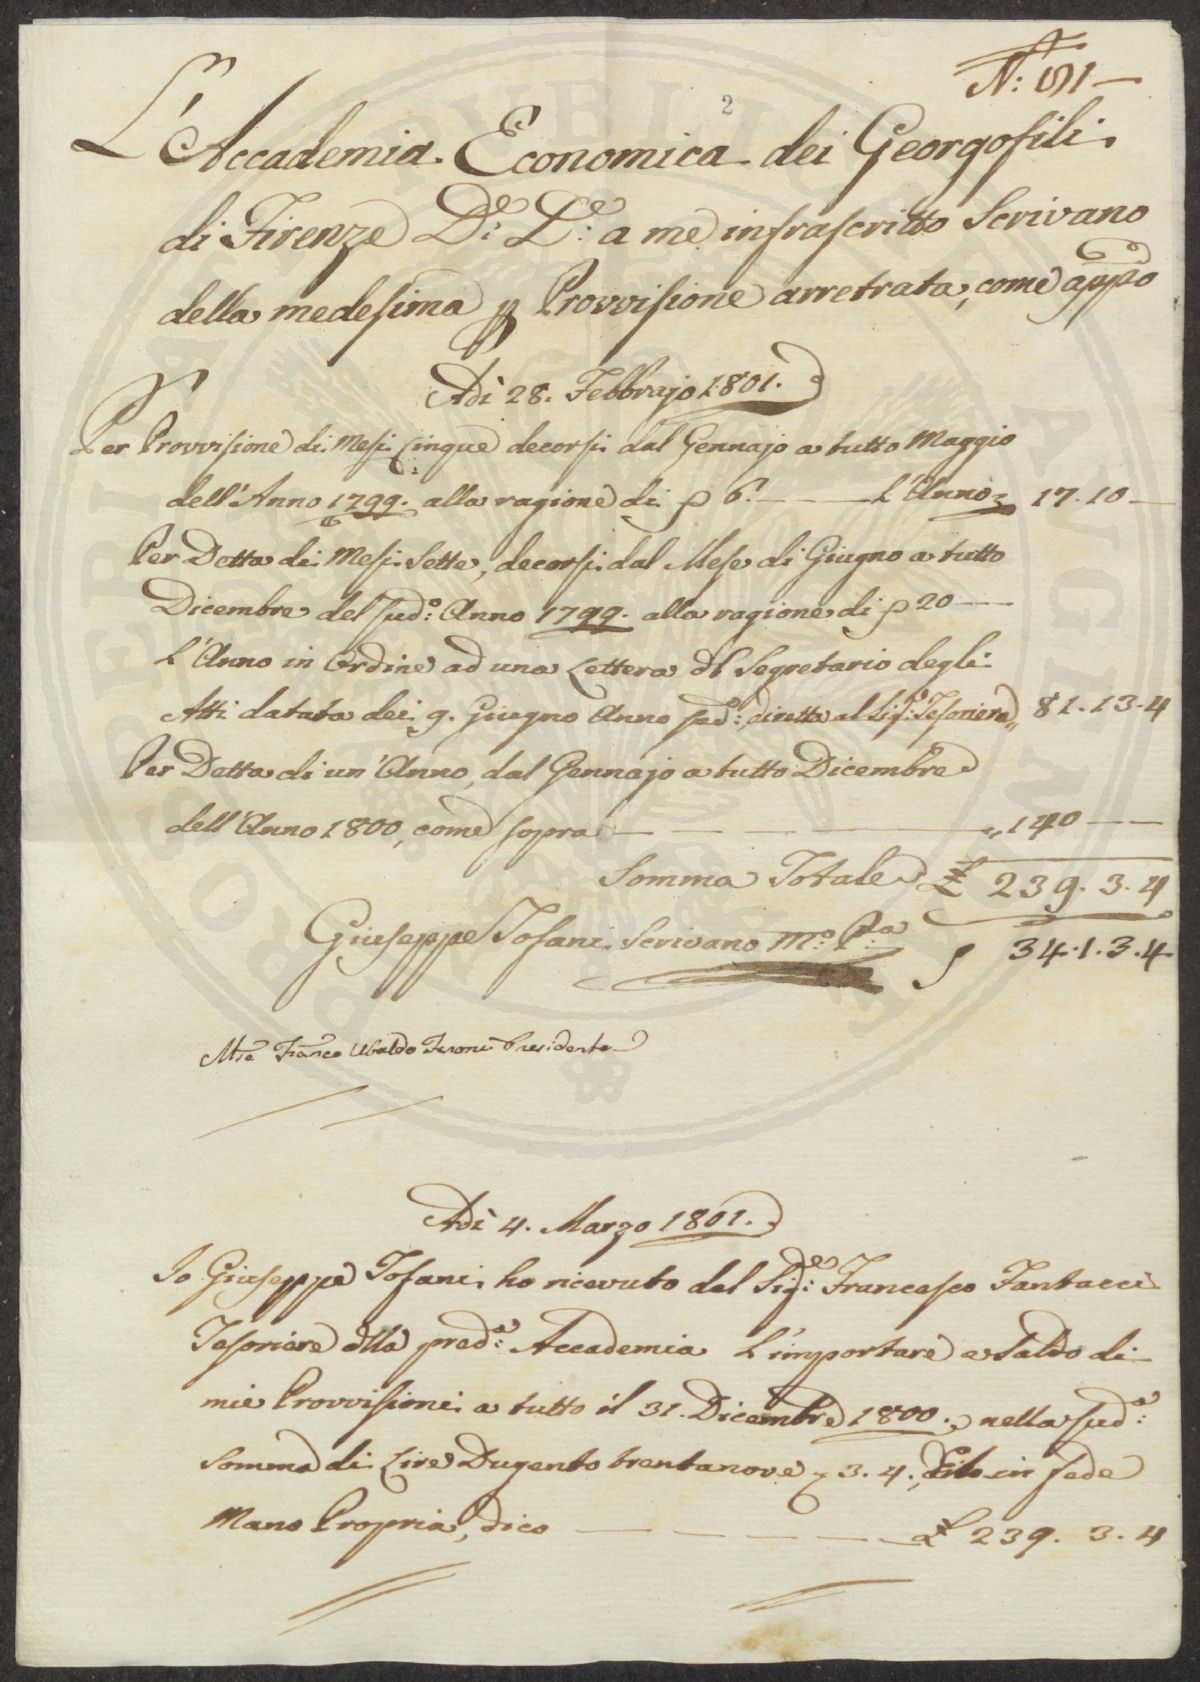 N: 51
2
L'Accademia Economica dei Georgofili
di Firenze De: De: a me infrascritto Scrivano
della medesima p Provvisione arretrata, come appo
Adì 28. Febbrajo 1801.
Per Provvisione di Mesi Cinque decorsi dal Gennajo a tutto Maggio
dell'Anno 1799. alla ragione di p 6. — L'Anno 17.10 —
Per Detta di Mesi Sette, decorsi dal Mese di Giugno a tutto
Dicembre del sudo: Anno 1799. alla ragione di p 20 —
L'Anno in Ordine ad una Lettera del Segretario degli
Atti datata dei 9. Giugno Anno sudo: diretta al Sigr: Tesoriere 81.13.4
Per Detta di un'Anno, dal Gennajo a tutto Dicembre
dell'Anno 1800, come sopra — — — „ 140 — —
Somma Totale £ 239.3.4
Giuseppe Tofani Scrivano Mo: Pa:
34.1.3.4
Franco Ubaldo Feroni Presidente
Adì 4. Marzo 1801.
Io Giuseppe Tofani ho ricevuto dal Sige: Francesco Fantacci
Tesoriere della preda: Accademia L'importare a Saldo di
mie Provvisioni a tutto il 31. Dicembre 1800., nella suda:
somma di Lire Dugento trentanove, 3. 4., in fede
Mano Propria, dico — — — — — £ 239. 3. 4
PROSPERITATI PUBLICAE AUGENDAE